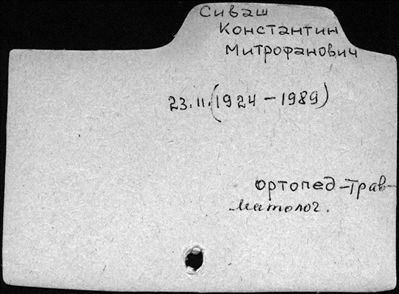 Сиваш
Константин
Митрофанович
23.II.(1924 – 1989)
ортопед-трав-
матолог.